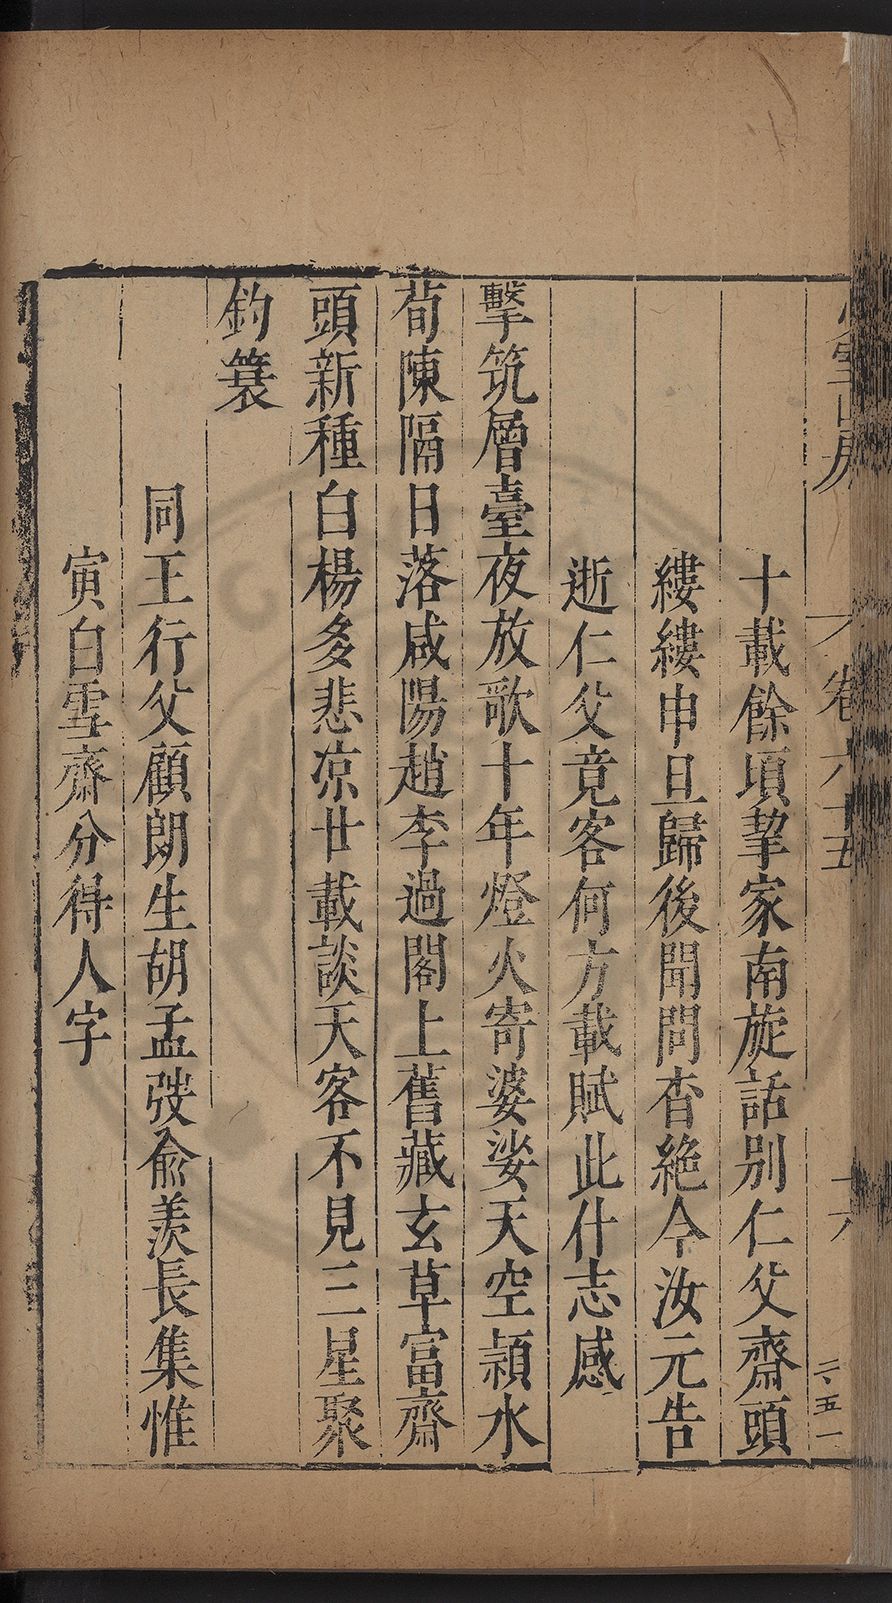 卷六十五
十六
二、五一
十載餘頃挈家南旋話別仁父齋頭
縷縷申旦歸後聞問杳絶今汝元告
逝仁父竟客何方載賦此什志感
擊筑層臺夜放歌十年燈火寄婆娑天空潁水
荀陳隔日落咸陽趙李過閣上舊藏玄草富齋
頭新種白楊多悲凉廿載談天客不見三星聚
釣簑
同王行父顧朗生胡孟弢兪羨長集惟
寅白雪齋分得人字